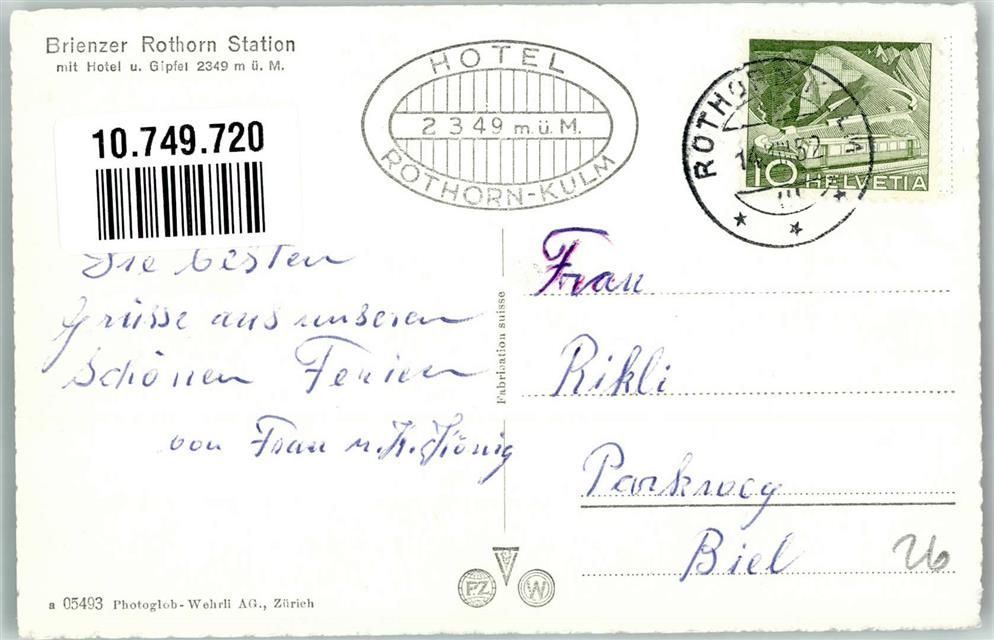 Brienzer Rothorn Station
mit Hotel u. Gipfel 2349 m ü. M.
10.749.720
HOTEL
2349 m.ü.M.
ROTHORN-KULM
10 HELVETIA
Die besten
Grüsse aus unseren
schönen Ferien
von Frau u. H. König
Fabrication suisse
Frau
Rikli
Parkweg
Biel
26
PZ
W
a 05493 Photoglob-Wehrli AG., Zürich